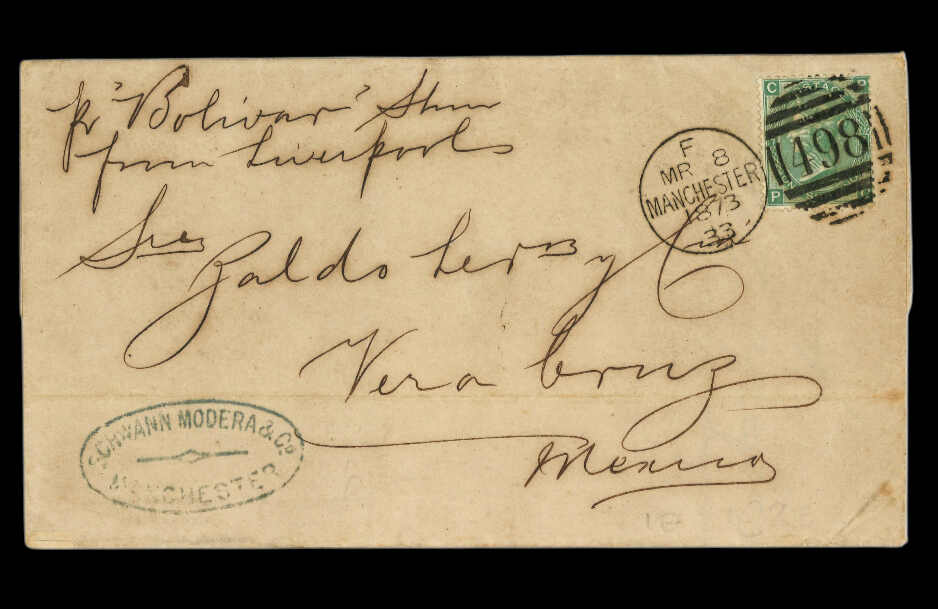 pr "Bolivar" Stmr
from Liverpool
Sres
Zaldo Hermos y Ca
Vera Cruz
Mexico
F
MR 8
MANCHESTER
1873
33
498
C P
POSTAGE
P C
SCHWANN MODERA & Co
MANCHESTER